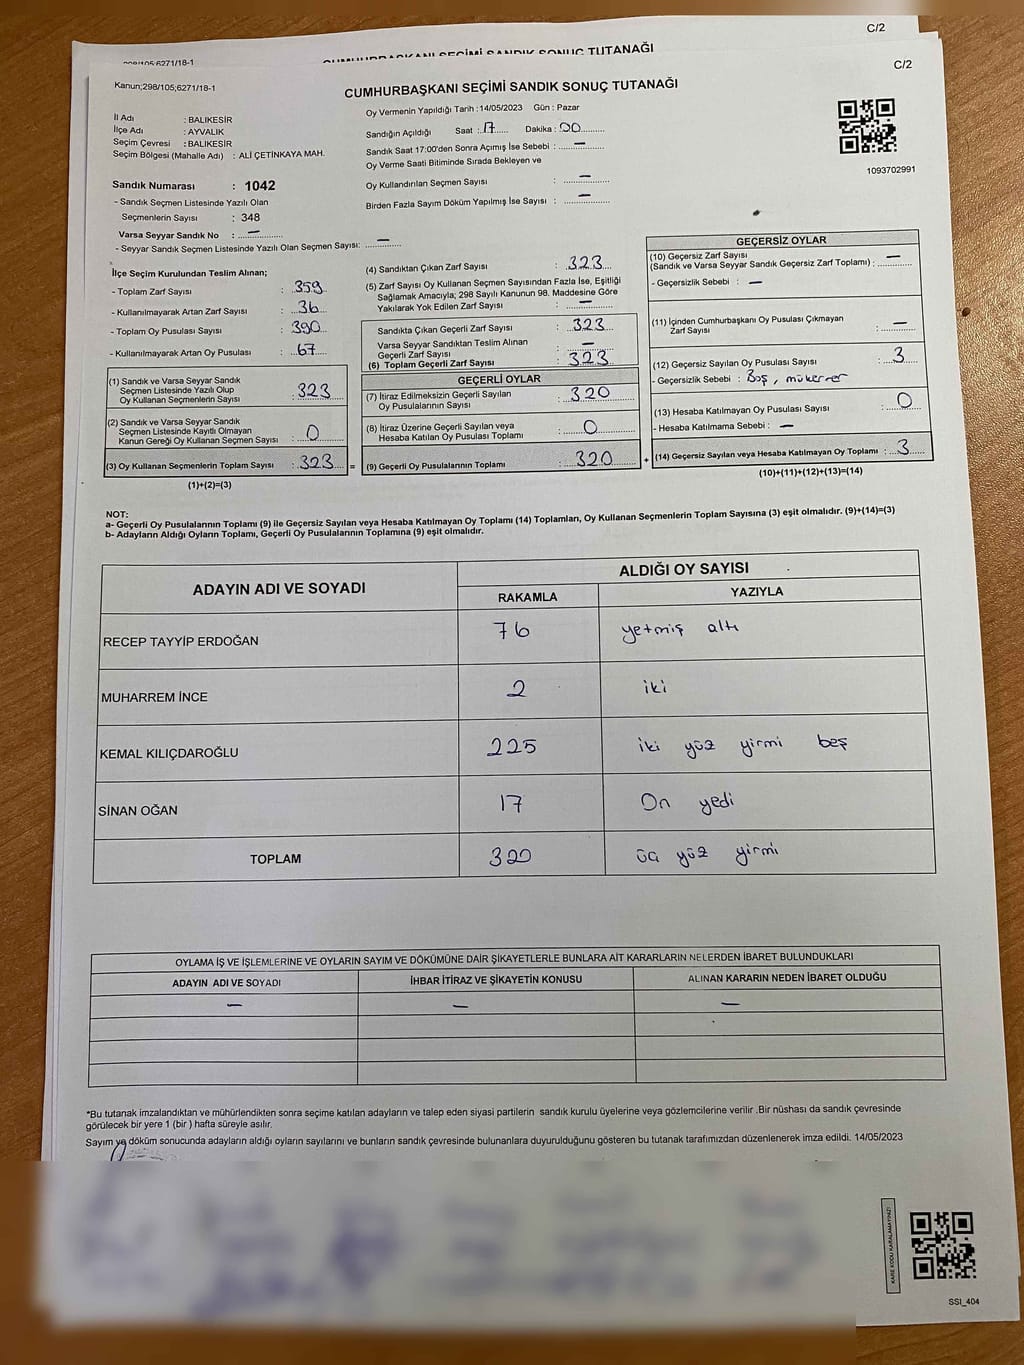 C/2
298/105;6271/18-1
CUMHURBAŞKANI SEÇİMİ SANDIK SONUÇ TUTANAĞI
C/2
Kanun;298/105;6271/18-1
CUMHURBAŞKANI SEÇİMİ SANDIK SONUÇ TUTANAĞI
İl Adı : BALIKESİR
İlçe Adı : AYVALIK
Seçim Çevresi : BALIKESİR
Seçim Bölgesi (Mahalle Adı) : ALİ ÇETİNKAYA MAH.
Oy Vermenin Yapıldığı Tarih :14/05/2023 Gün : Pazar
Sandığın Açıldığı Saat : 17 Dakika : 00
Sandık Saat 17:00'den Sonra Açımış İse Sebebi : —
Oy Verme Saati Bitiminde Sırada Bekleyen ve
Oy Kullandırılan Seçmen Sayısı : —
Birden Fazla Sayım Döküm Yapılmış İse Sayısı : —
1093702991
Sandık Numarası : 1042
- Sandık Seçmen Listesinde Yazılı Olan
Seçmenlerin Sayısı : 348
Varsa Seyyar Sandık No : —
- Seyyar Sandık Seçmen Listesinde Yazılı Olan Seçmen Sayısı: —
İlçe Seçim Kurulundan Teslim Alınan;
- Toplam Zarf Sayısı : 359
- Kullanılmayarak Artan Zarf Sayısı : 36
- Toplam Oy Pusulası Sayısı : 390
- Kullanılmayarak Artan Oy Pusulası : 67
(1) Sandık ve Varsa Seyyar Sandık
Seçmen Listesinde Yazılı Olup
Oy Kullanan Seçmenlerin Sayısı : 323
(2) Sandık ve Varsa Seyyar Sandık
Seçmen Listesinde Kayıtlı Olmayan
Kanun Gereği Oy Kullanan Seçmen Sayısı : 0
(3) Oy Kullanan Seçmenlerin Toplam Sayısı : 323 =
(1)+(2)=(3)
(4) Sandıktan Çıkan Zarf Sayısı : 323
(5) Zarf Sayısı Oy Kullanan Seçmen Sayısından Fazla İse, Eşitliği
Sağlamak Amacıyla; 298 Sayılı Kanunun 98. Maddesine Göre
Yakılarak Yok Edilen Zarf Sayısı : —
Sandıkta Çıkan Geçerli Zarf Sayısı : 323
Varsa Seyyar Sandıktan Teslim Alınan
Geçerli Zarf Sayısı : —
(6) Toplam Geçerli Zarf Sayısı : 323
GEÇERLİ OYLAR
(7) İtiraz Edilmeksizin Geçerli Sayılan
Oy Pusulalarının Sayısı : 320
(8) İtiraz Üzerine Geçerli Sayılan veya
Hesaba Katılan Oy Pusulası Toplamı : 0
(9) Geçerli Oy Pusulalarının Toplamı : 320 +
GEÇERSİZ OYLAR
(10) Geçersiz Zarf Sayısı
(Sandık ve Varsa Seyyar Sandık Geçersiz Zarf Toplamı) : —
- Geçersizlik Sebebi : —
(11) İçinden Cumhurbaşkanı Oy Pusulası Çıkmayan
Zarf Sayısı : —
(12) Geçersiz Sayılan Oy Pusulası Sayısı : 3
- Geçersizlik Sebebi : Boş, mükerrer
(13) Hesaba Katılmayan Oy Pusulası Sayısı : 0
- Hesaba Katılmama Sebebi : —
(14) Geçersiz Sayılan veya Hesaba Katılmayan Oy Toplamı : 3
(10)+(11)+(12)+(13)=(14)
NOT:
a- Geçerli Oy Pusulalarının Toplamı (9) ile Geçersiz Sayılan veya Hesaba Katılmayan Oy Toplamı (14) Toplamları, Oy Kullanan Seçmenlerin Toplam Sayısına (3) eşit olmalıdır. (9)+(14)=(3)
b- Adayların Aldığı Oyların Toplamı, Geçerli Oy Pusulalarının Toplamına (9) eşit olmalıdır.
ADAYIN ADI VE SOYADI
ALDIĞI OY SAYISI
RAKAMLA YAZIYLA
RECEP TAYYİP ERDOĞAN 76 yetmiş altı
MUHARREM İNCE 2 iki
KEMAL KILIÇDAROĞLU 225 iki yüz yirmi beş
SİNAN OĞAN 17 On yedi
TOPLAM 320 üç yüz yirmi
OYLAMA İŞ VE İŞLEMLERİNE VE OYLARIN SAYIM VE DÖKÜMÜNE DAİR ŞİKAYETLERLE BUNLARA AİT KARARLARIN NELERDEN İBARET BULUNDUKLARI
ADAYIN ADI VE SOYADI İHBAR İTİRAZ VE ŞİKAYETİN KONUSU ALINAN KARARIN NEDEN İBARET OLDUĞU
— — —
*Bu tutanak imzalandıktan ve mühürlendikten sonra seçime katılan adayların ve talep eden siyasi partilerin sandık kurulu üyelerine veya gözlemcilerine verilir .Bir nüshası da sandık çevresinde
görülecek bir yere 1 (bir ) hafta süreyle asılır.
Sayım ve döküm sonucunda adayların aldığı oyların sayılarını ve bunların sandık çevresinde bulunanlara duyurulduğunu gösteren bu tutanak tarafımızdan düzenlenerek imza edildi. 14/05/2023
KARE KODU KARALAMAYINIZ!
SSI_404